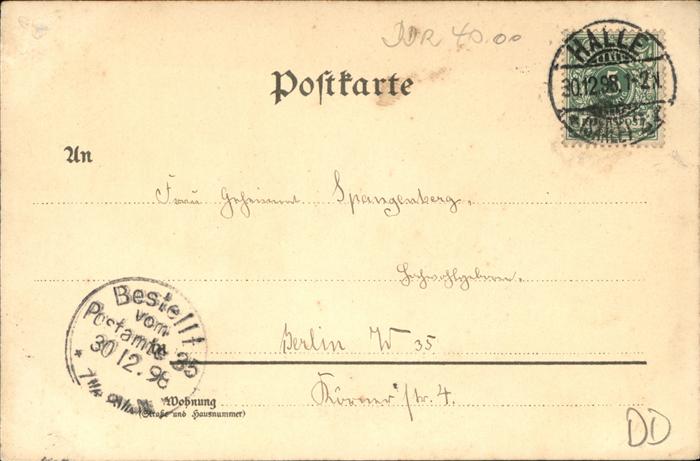 DDR 40.00
HALLE
30.12.98. 1-2 N.
Postkarte
An
Frau Geheimrat Spangenberg,
Hochwohlgeboren,
Berlin W 35
Körner str. 4.
Bestellt
vom
Postamte 35
30.12.98
Wohnung
(Straße und Hausnummer)
DD